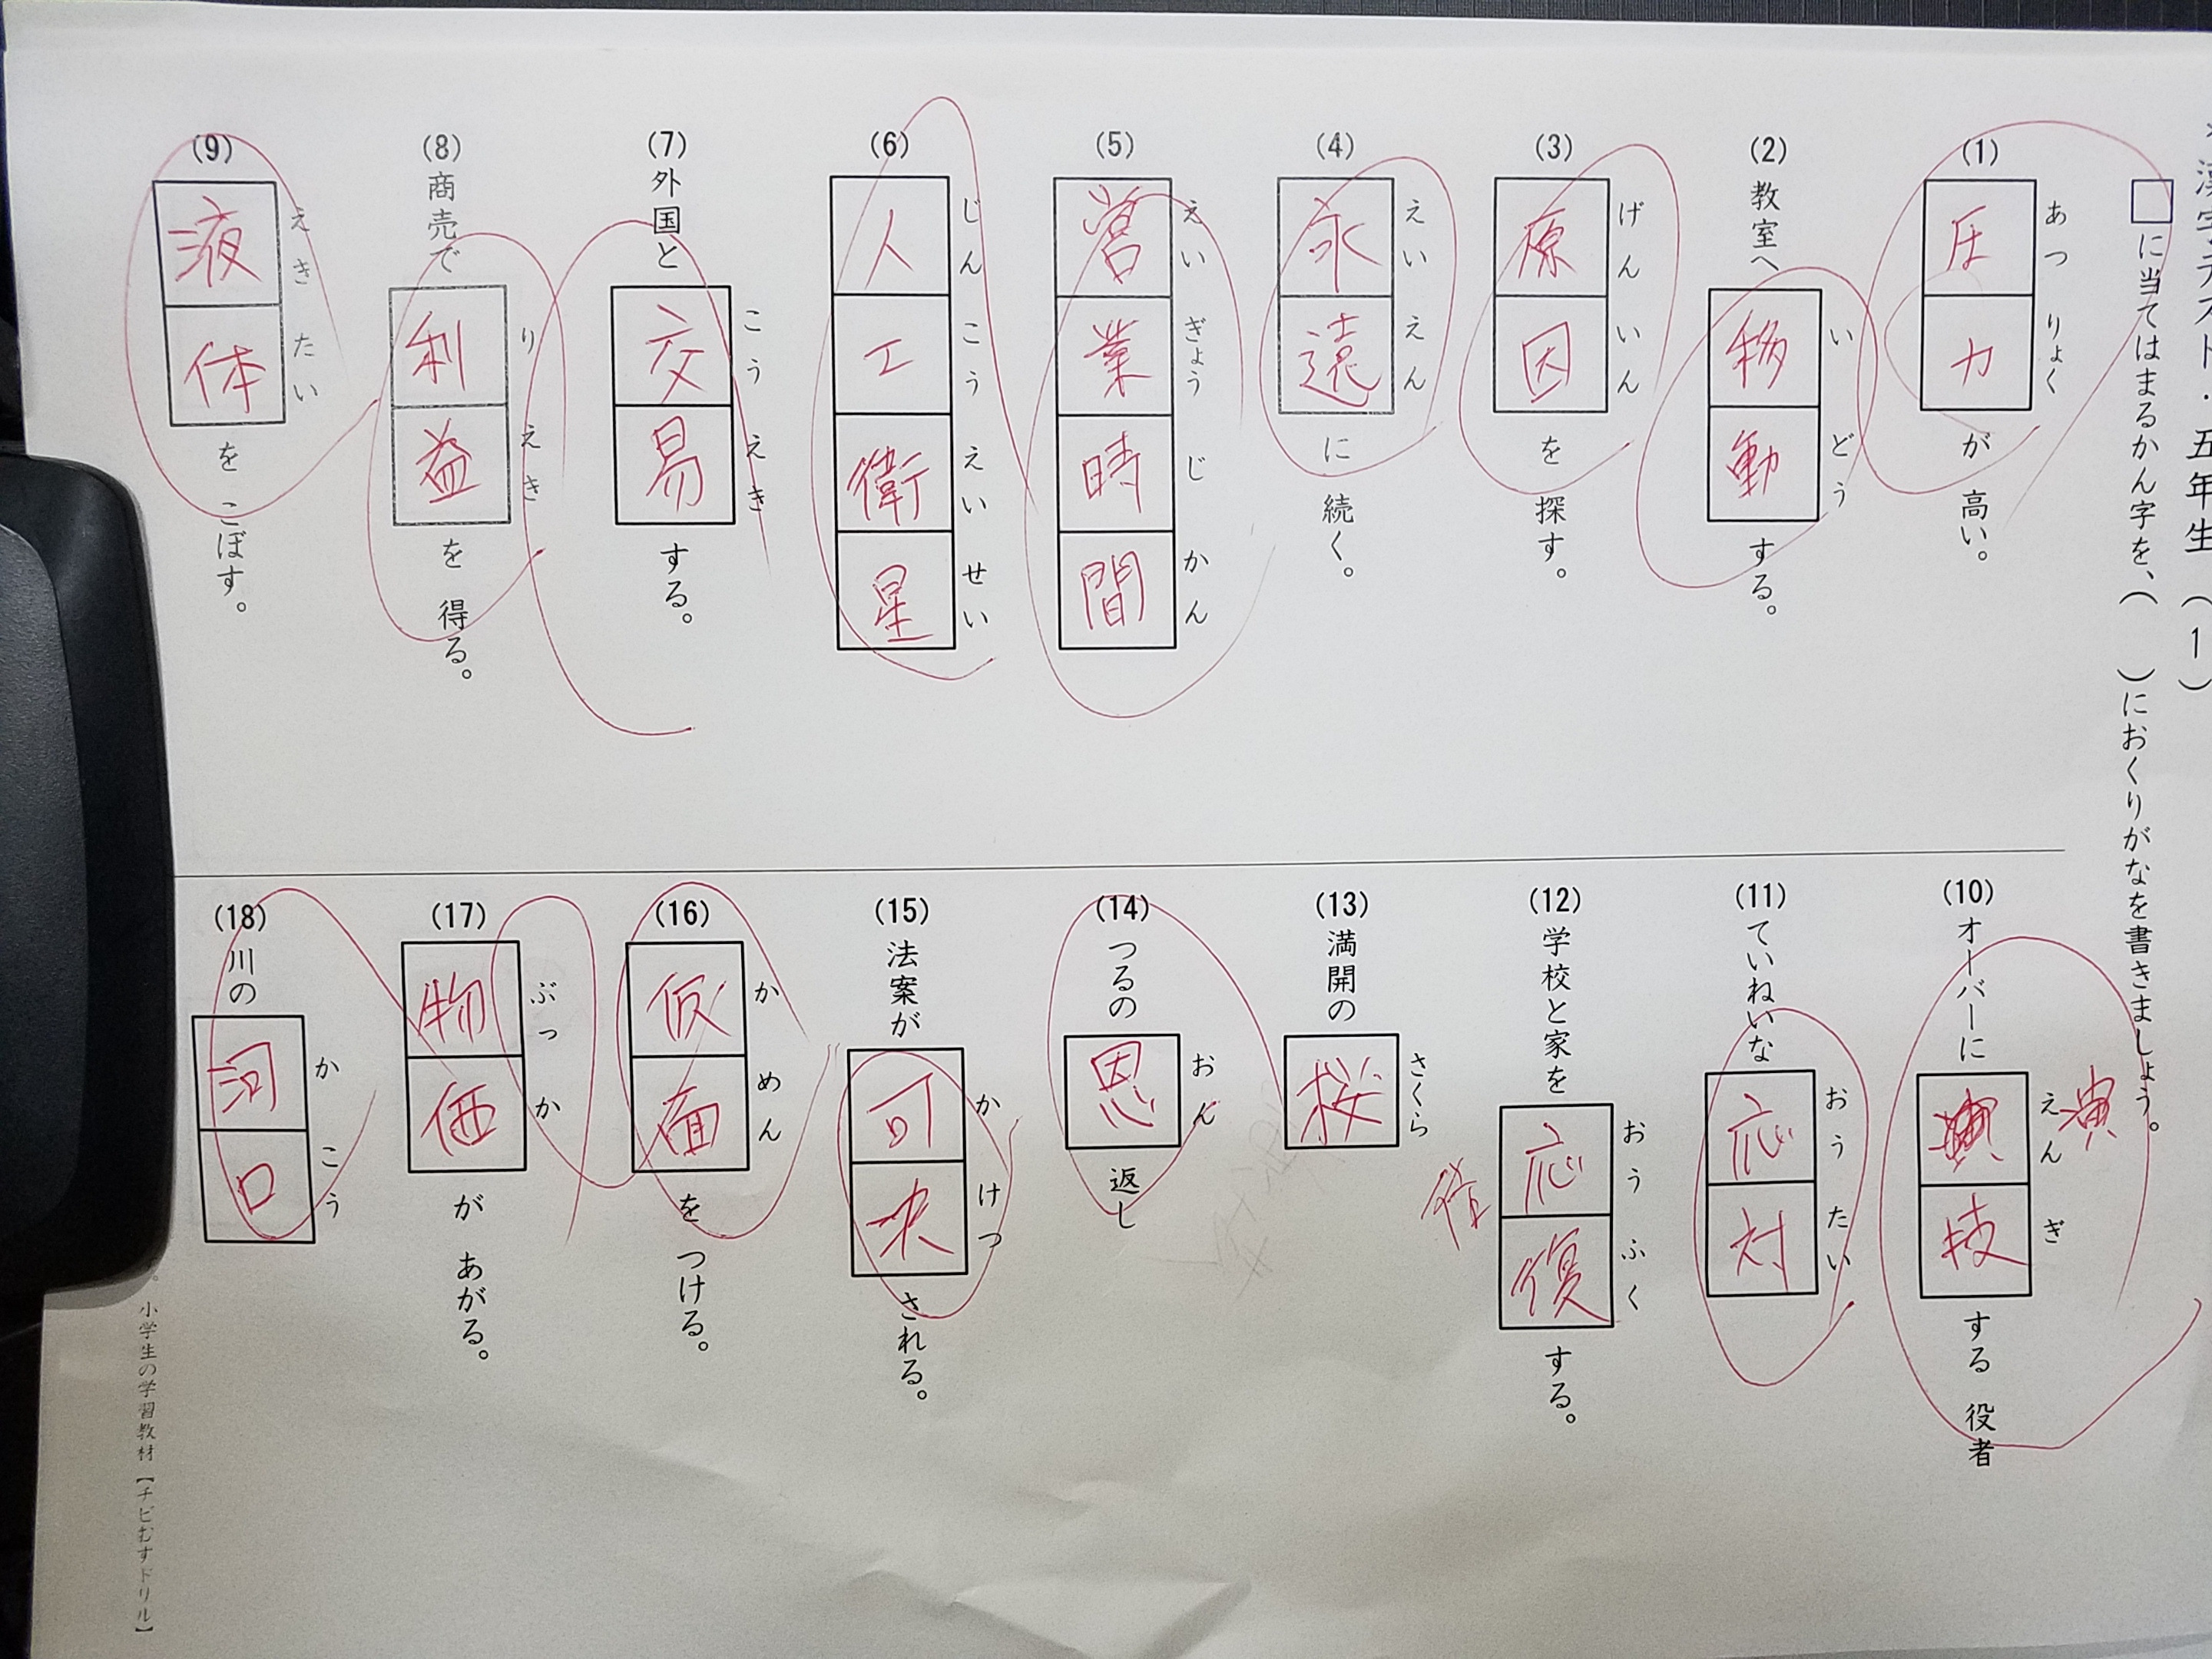 漢字テスト・五年生（1）
□に当てはまるかん字を、（　）におくりがなを書きましょう。
(1) 圧力が 高い。
あつりょく
(2) 教室へ移動する。
いどう
(3) 原因を 探す。
げんいん
(4) 永遠に 続く。
えいえん
(5) 営業時間
えいぎょうじかん
(6) 人工衛星
じんこうえいせい
(7) 外国と交易する。
こうえき
(8) 商売で利益を 得る。
りえき
(9) 液体を こぼす。
えきたい
(10) オーバーに技する 役者
えんぎ
演
(11) ていねいな応対
おうたい
(12) 学校と家を応復する。
おうふく
(13) 満開の桜
さくら
(14) つるの恩返し
おん
(15) 法案が可決される。
かけつ
(16) 仮面を つける。
かめん
(17) 物価が あがる。
ぶっか
(18) 川の河口
かこう
小学生の学習教材【チビむすドリル】